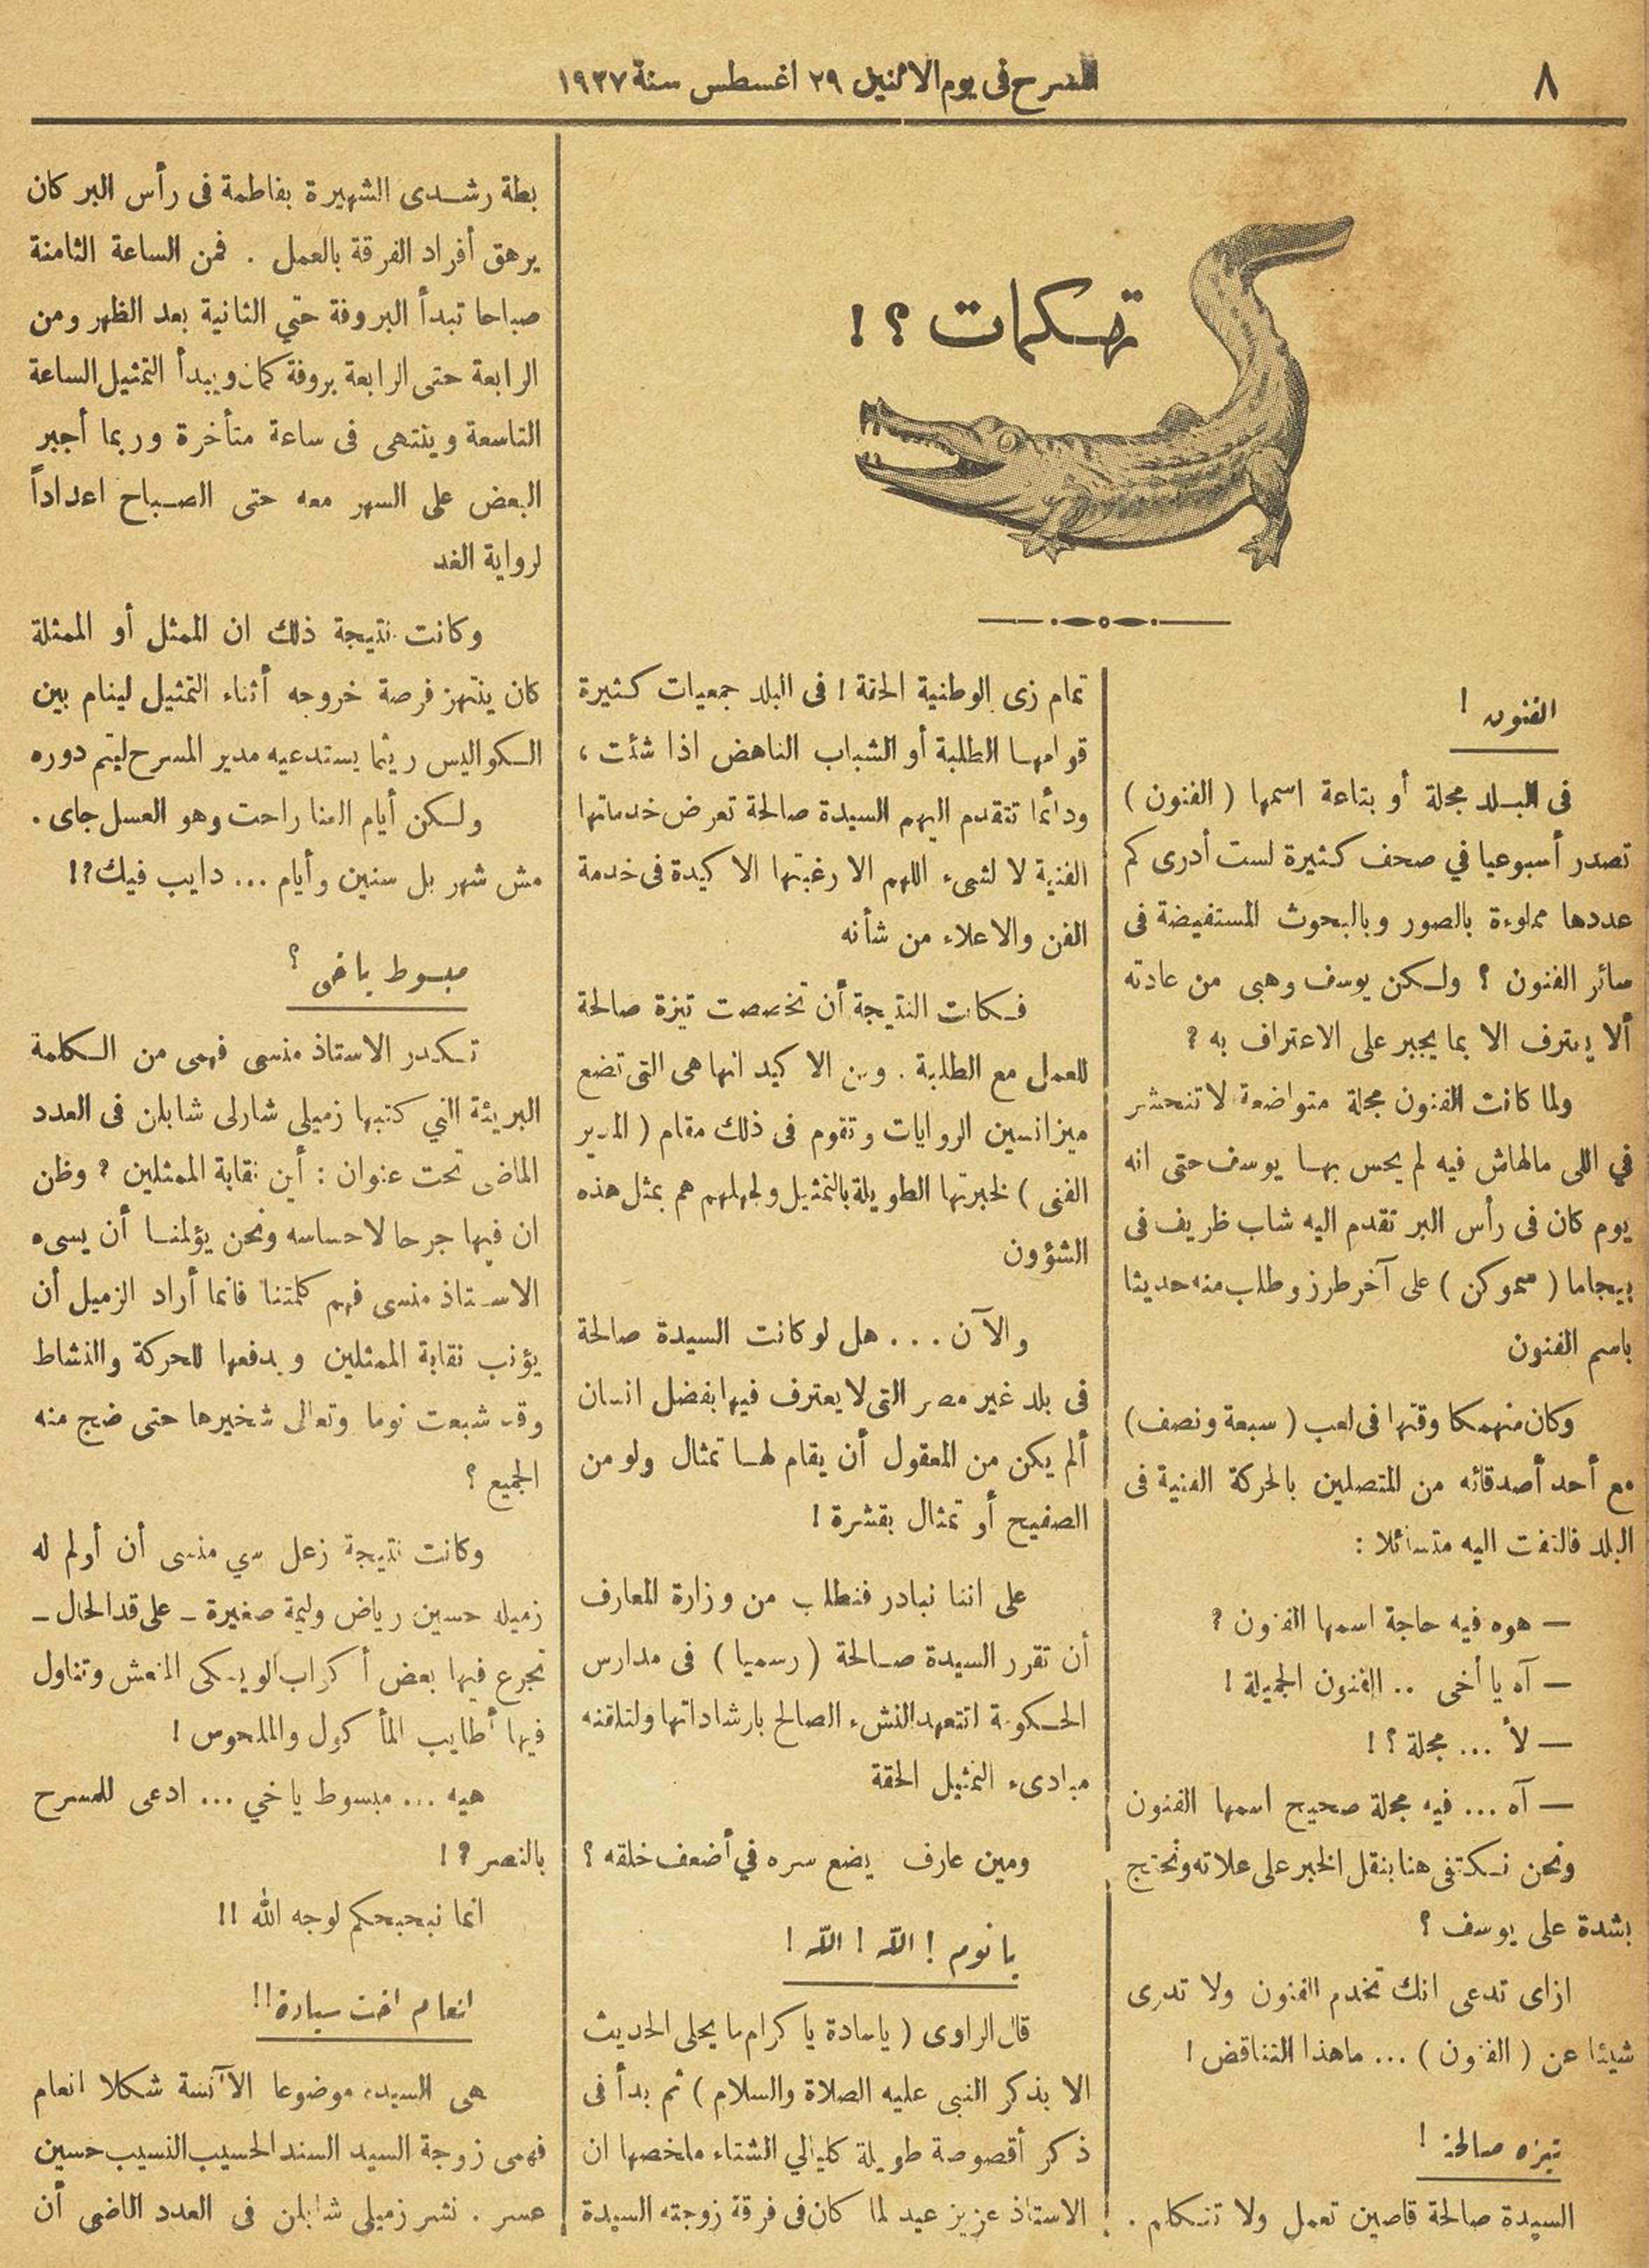 ٨
المسرح فى يوم الاثنين ٢٩ اغسطس سنة ١٩٢٧
تهكمات ؟ !
الفنون !
فى البلد مجلة أو بتاعة اسمها ( الفنون )
تصدر أسبوعيا في صحف كثيرة لست أدرى كم
عددها مملوءة بالصور وبالبحوث المستفيضة فى
سائر الفنون ؟ ولكن يوسف وهبى من عادته
ألا يعترف الا بما يجبر على الاعتراف به ؟
ولما كانت الفنون مجلة متواضعة لا تنحشر
في اللى مالهاش فيه لم يحس بها يوسف حتى انه
يوم كان فى رأس البر تقدم اليه شاب ظريف فى
بيجاما ( سموكن ) على آخر طرز وطلب منه حديثا
باسم الفنون
وكان منهمكا وقتها فى لعب ( سبعة ونصف )
مع أحد أصدقائه من المتصلين بالحركة الفنية فى
البلد فالتفت اليه متسائلا :
— هوه فيه حاجة اسمها الفنون ؟
— آه يا أخى .. الفنون الجميلة !
— لأ ... مجلة ؟ !
— آه ... فيه مجلة صحيح اسمها الفنون
ونحن نكتفى هنا بنقل الخبر على علاته ونحتج
بشدة على يوسف ؟
ازاى تدعى انك تخدم الفنون ولا تدرى
شيئا عن ( الفنون ) ... ماهذا التناقض !
تيزه صالحة !
السيدة صالحة قاصين تعمل ولا تتكلم .
تمام زى الوطنية الحقة ! فى البلد جمعيات كثيرة
قوامها الطلبة أو الشباب الناهض اذا شئت ،
ودائما تتقدم اليهم السيدة صالحة تعرض خدماتها
الفنية لا لشىء اللهم الا رغبتها الاكيدة فى خدمة
الفن والاعلاء من شأنه
فكانت النتيجة أن تخصصت تيزة صالحة
للعمل مع الطلبة . ومن الاكيد انها هى التى تضع
ميزانسين الروايات وتقوم فى ذلك مقام ( المدير
الفنى ) لخبرتها الطويلة بالتمثيل ولجهلهم هم بمثل هذه
الشؤون
والآن ... هل لو كانت السيدة صالحة
فى بلد غير مصر التى لا يعترف فيها بفضل انسان
ألم يكن من المعقول أن يقام لها تمثال ولو من
الصفيح أو تمثال بقشرة !
على اننا نبادر فنطلب من وزارة المعارف
أن تقرر السيدة صالحة ( رسميا ) فى مدارس
الحكومة لتتعهد النشء الصالح بارشاداتها ولتلقنه
مبادىء التمثيل الحقة
ومين عارف يضع سره في أضعف خلقه ؟
يا نوم ! الله ! الله !
قال الراوى ( ياسادة يا كرام ما يحلى الحديث
الا بذكر النبى عليه الصلاة والسلام ) ثم بدأ فى
ذكر أقصوصة طويلة كليالي الشتاء ملخصها ان
الاستاذ عزيز عيد لما كان فى فرقة زوجته السيدة
بطة رشدى الشهيرة بفاطمة فى رأس البر كان
يرهق أفراد الفرقة بالعمل . فمن الساعة الثامنة
صباحا تبدأ البروفة حتي الثانية بعد الظهر ومن
الرابعة حتى الرابعة بروفة كمان ويبدأ التمثيل الساعة
التاسعة وينتهى فى ساعة متأخرة وربما أجبر
البعض على السهر معه حتى الصباح اعداداً
لرواية الغد
وكانت نتيجة ذلك ان الممثل أو الممثلة
كان ينتهز فرصة خروجه أثناء التمثيل لينام بين
الكواليس ريثما يستدعيه مدير المسرح ليتم دوره
ولكن أيام الهنا راحت وهو العسل جاى .
مش شهر بل سنين وأيام ... دايب فيك ؟!
مبسوط ياخى ؟
تكدر الاستاذ منسى فهمى من الكلمة
البريئة التي كتبها زميلى شارلى شابلن فى العدد
الماضى تحت عنوان : أين نقابة الممثلين ؟ وظن
ان فيها جرحا لاحساسه ونحن يؤلمنا أن يسىء
الاستاذ منسى فهم كلمتنا فانما أراد الزميل أن
يؤنب نقابة الممثلين ويدفعها للحركة والنشاط
وقد شبعت نوما وتعالى شخيرها حتى ضج منه
الجميع ؟
وكانت نتيجة زعل سي منسى أن أولم له
زميله حسين رياض وليمة صغيرة – على قد الحال –
تجرع فيها بعض أكواب الويسكى المنعش وتناول
فيها أطايب المأكول والملحوس !
هيه ... مبسوط ياخي ... ادعى للمسرح
بالنصر ؟ !
انما نبحبحكم لوجه الله !!
انعام اخت سيادة !!
هى السيدة موضوعا الآنسة شكلا انعام
فهمى زوجة السيد السند الحسيب النسيب حسين
عسر . نشر زميلى شابلن فى العدد الماضى أن